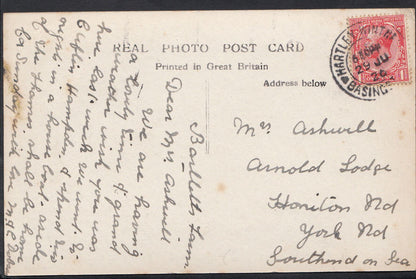 REAL PHOTO POST CARD
Printed in Great Britain
Address below
HARTLEY WINTNEY
BASINGSTOKE
Bartletts Farm
Dear Mrs Ashwell
We are having
a lovely time & grand
weather wish you was
here. Last week we went to
Clifton Hampden & spend 10
days in a house boat on
the Thames shall be home
by Sunday with love
Mrs Ashwell
Arnold Lodge
Honiton Rd
York Rd
Southend on Sea